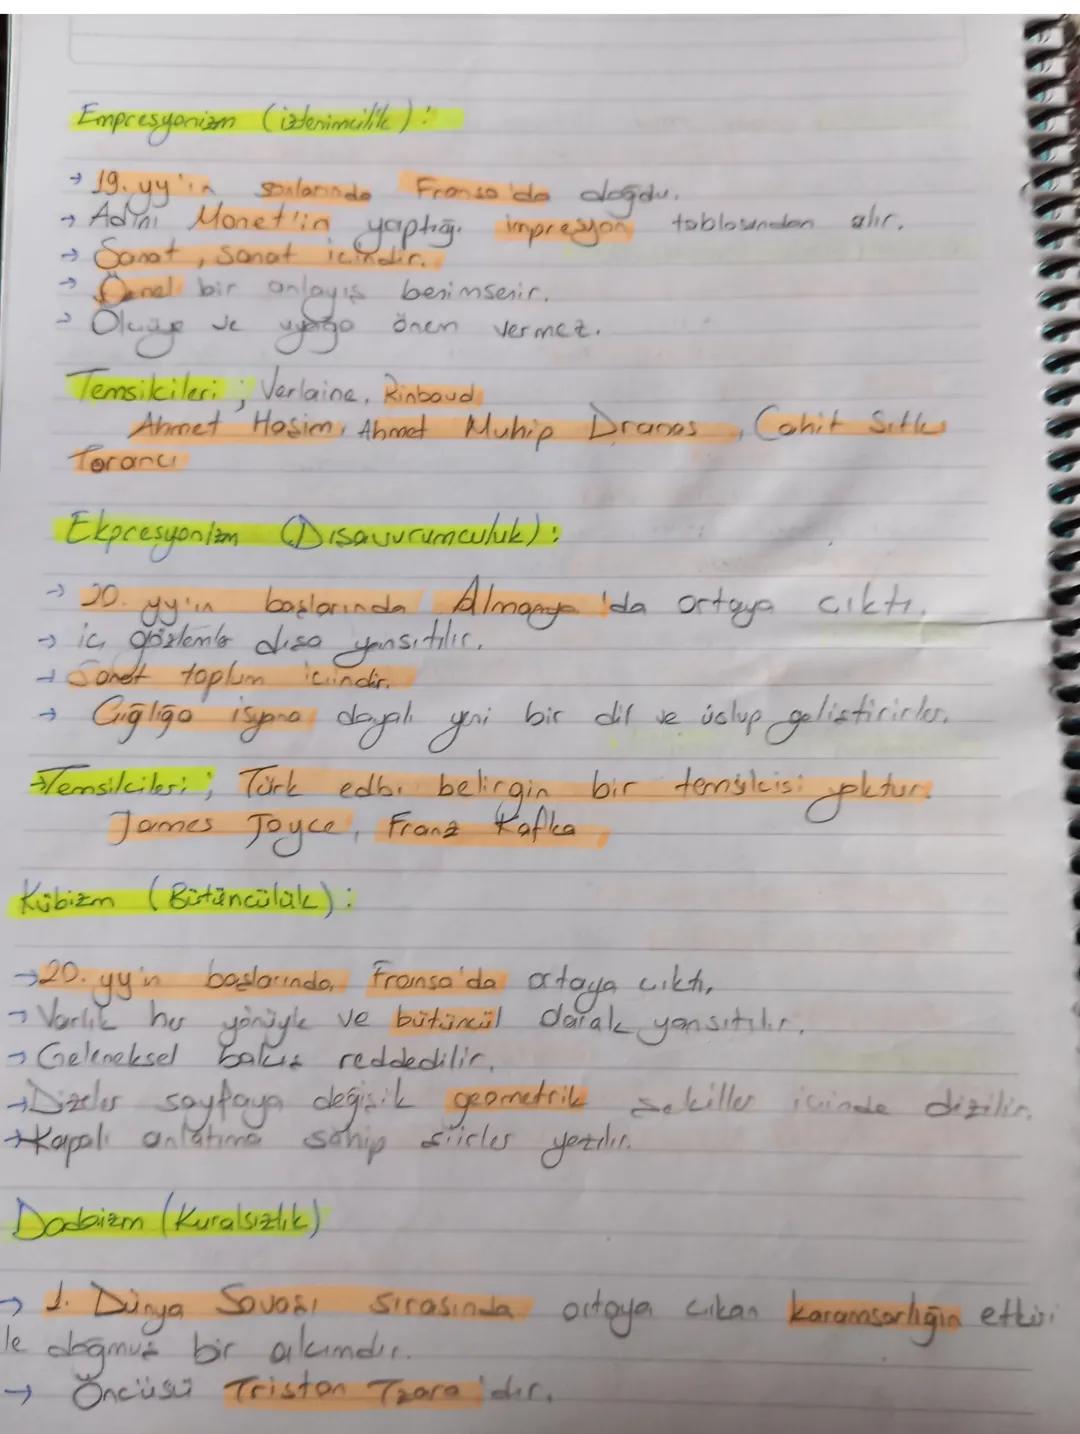 Empresyonizm (izlenimcilik):
→ 19. yy'ın sonlarında Fransa'da doğdu.
→ Adını Monet'in yaptığı impresyon tablosundan alır.
→ Sanat, sanat içindir.
→ Öznel bir anlayış benimsenir.
→ Ölçüye ve uyağa önem vermez.
Temsilcileri; Verlaine, Rinboud
Ahmet Haşim, Ahmet Muhip Dranas, Cahit Sıtkı
Tarancı
Ekpresyonizm (Dışavurumculuk):
→ 20. yy'ın başlarında Almanya'da ortaya çıktı.
→ iç gözlemle dışa yansıtılır.
→ Sanat toplum içindir.
→ Çığlığa isyana dayalı yeni bir dil ve üslup geliştirirler.
→Temsilcileri; Türk edb. belirgin bir temsilcisi yoktur.
James Joyce, Franz Kafka
Kübizm (Bütüncülük):
→20. yy'ın başlarında, Fransa'da ortaya çıktı,
→ Varlık her yönüyle ve bütüncül olarak yansıtılır.
→ Geleneksel bakış reddedilir.
→Dizeler sayfaya değişik geometrik şekiller içinde dizilir.
→Kapalı anlatıma sahip şiirler yazılır.
Dadaizm (Kuralsızlık)
→ 1. Dünya Savaşı sırasında ortaya çıkan karamsarlığın etkisi
le doğmuş bir akımdır.
→ Öncüsü Tristan Tzara'dır.